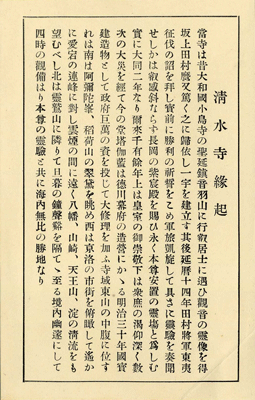 清水寺緣起
當寺は昔大和國小島寺の聖延鎮音羽山に行叡居士に遇ひ觀音の靈像を得
坂上田村麿又篤く之に歸依し一宇を建立す其後延曆十四年田村將軍東夷
征伐の詔を拜し寶前に勝利の祈誓をこめ軍旅凱旋して具さに靈驗を奏聞
せしかは叡感斜ならす長岡の紫宸殿を賜ひ永く本尊安置の靈塲と爲しむ
實に大同二年なり爾來千有餘年上は皇室の御崇敬下は衆庶の渴仰深く數
次の大災を經て今の堂塔伽藍は德川幕府の造營にかゝる明治三十年國寶
建造物として政府巨萬の資を投して大修理を加ふ寺域東山の中腹に位す
れは南は阿彌陀峯、稻荷山の翠黛を眺め西は京洛の市街を俯瞰して遙か
に愛宕の連峰に對し雲煙の間に遠く八幡、山崎、天王山、淀の清流をも
望むべし北は靈鷲山に隣りて旦暮の鐘聲谿を隔てゝ至る境內幽邃にして
四時の觀備はり本尊の靈驗と共に海內無比の勝地なり